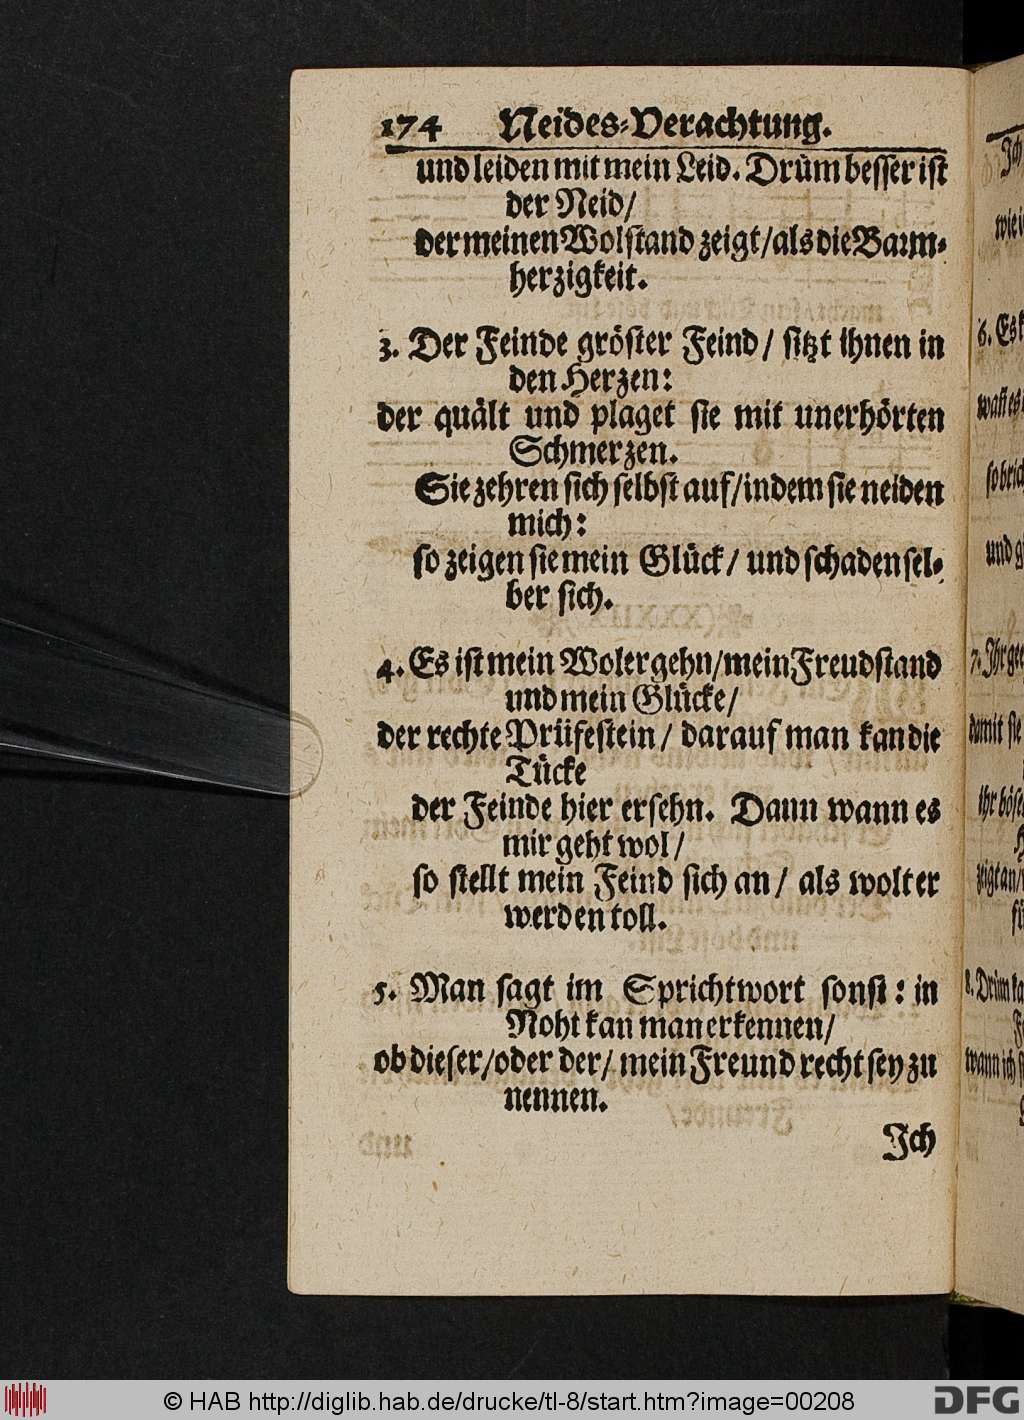 174 Neides-Verachtung.
und leiden mit mein Leid. Drüm besser ist
der Neid/
der meinen Wolstand zeigt/als die Barm-
herzigkeit.
3. Der Feinde gröster Feind/ sitzt ihnen in
den Herzen:
der quält und plaget sie mit unerhörten
Schmerzen.
Sie zehren sich selbst auf/indem sie neiden
mich:
so zeigen sie mein Glück/ und schaden sel-
ber sich.
4. Es ist mein Wolergehn/mein Freudstand
und mein Glücke/
der rechte Prüfestein/ darauf man kan die
Tücke
der Feinde hier ersehn. Dann wann es
mir geht wol/
so stellt mein Feind sich an/ als wolt er
werden toll.
5. Man sagt im Sprichtwort sonst: in
Noht kan man erkennen/
ob dieser/oder der/ mein Freund recht sey zu
nennen.
Ich
wie i
6. Es k
so brich
und g
7. Ihr gee
damit sie
ihr böse
zeigt an/
8. Drüm ka
wann ich
© HAB http://diglib.hab.de/drucke/tl-8/start.htm?image=00208
DFG